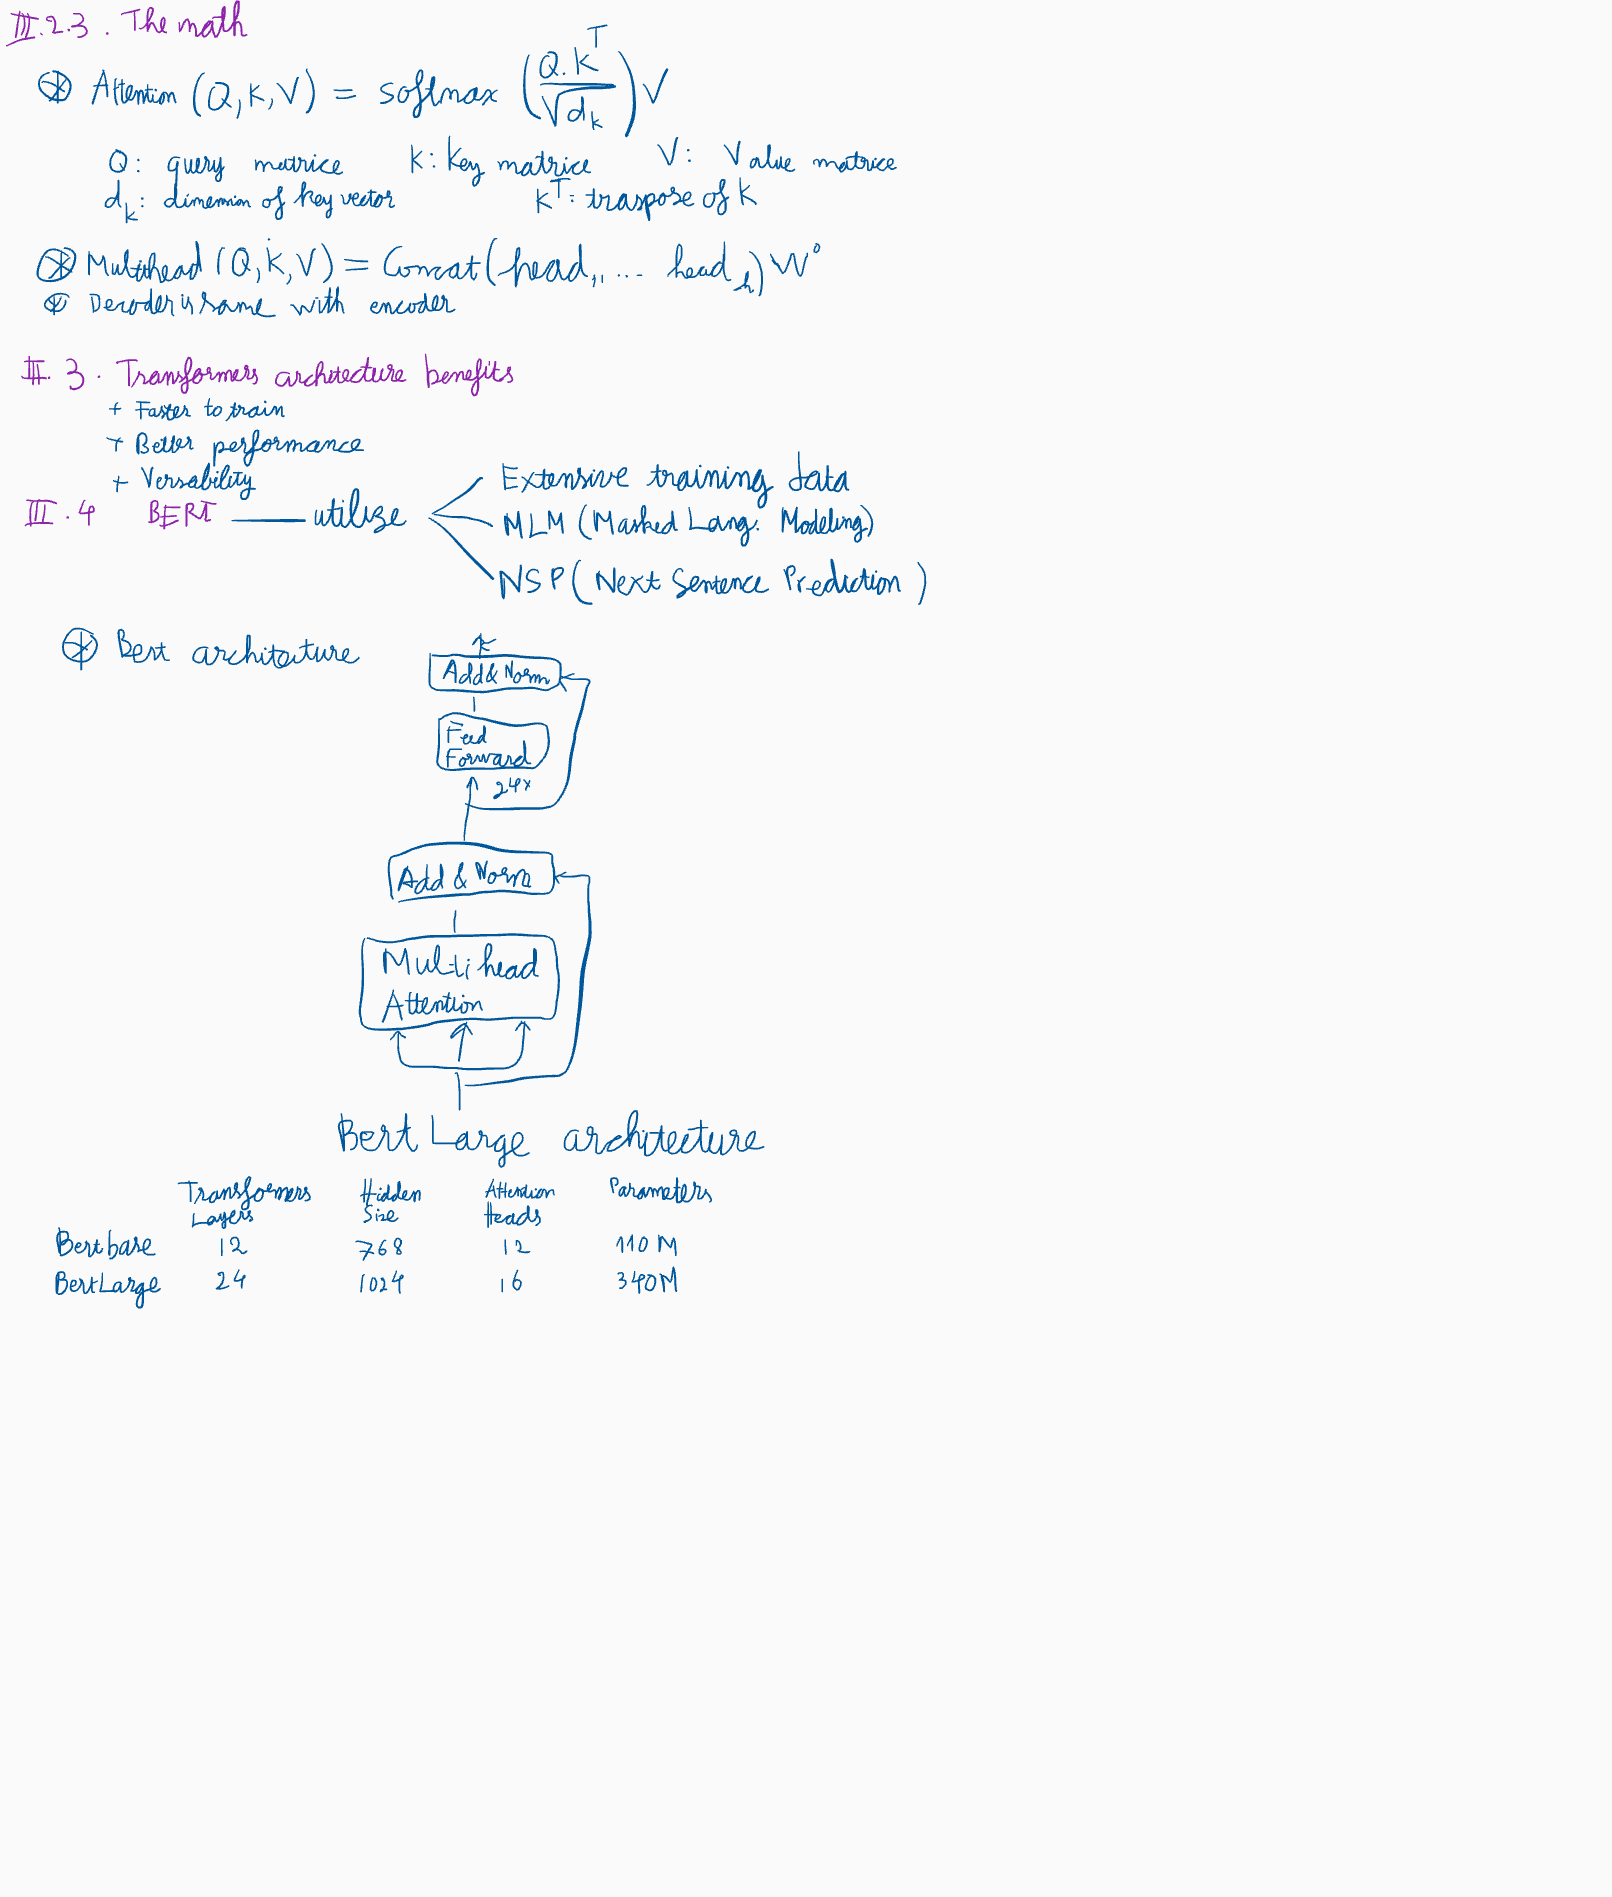 III.2.3. The math
⊛ Attention (Q, K, V) = softmax (Q.K^T / √d_k) V
Q: query matrice K: Key matrice V: Value matrice
d_k: dimension of key vector K^T: traspose of K
⊛ Multihead (Q, K, V) = Concat (head_1, ... head_h) W^o
⊛ Decoder is same with encoder
III. 3. Transformers architecture benefits
+ Faster to train
+ Better performance
+ Versability
III. 4 BERT — utilize
Extensive training data
MLM (Masked Lang. Modeling)
NSP (Next Sentence Prediction)
⊛ Bert architecture
Add & Norm
Feed
Forward
24x
Add & Norm
Multi head
Attention
Bert Large architecture
Transformers Hidden Attention Parameters
Layers Size Heads
Bert base 12 768 12 110M
Bert Large 24 1024 16 340M